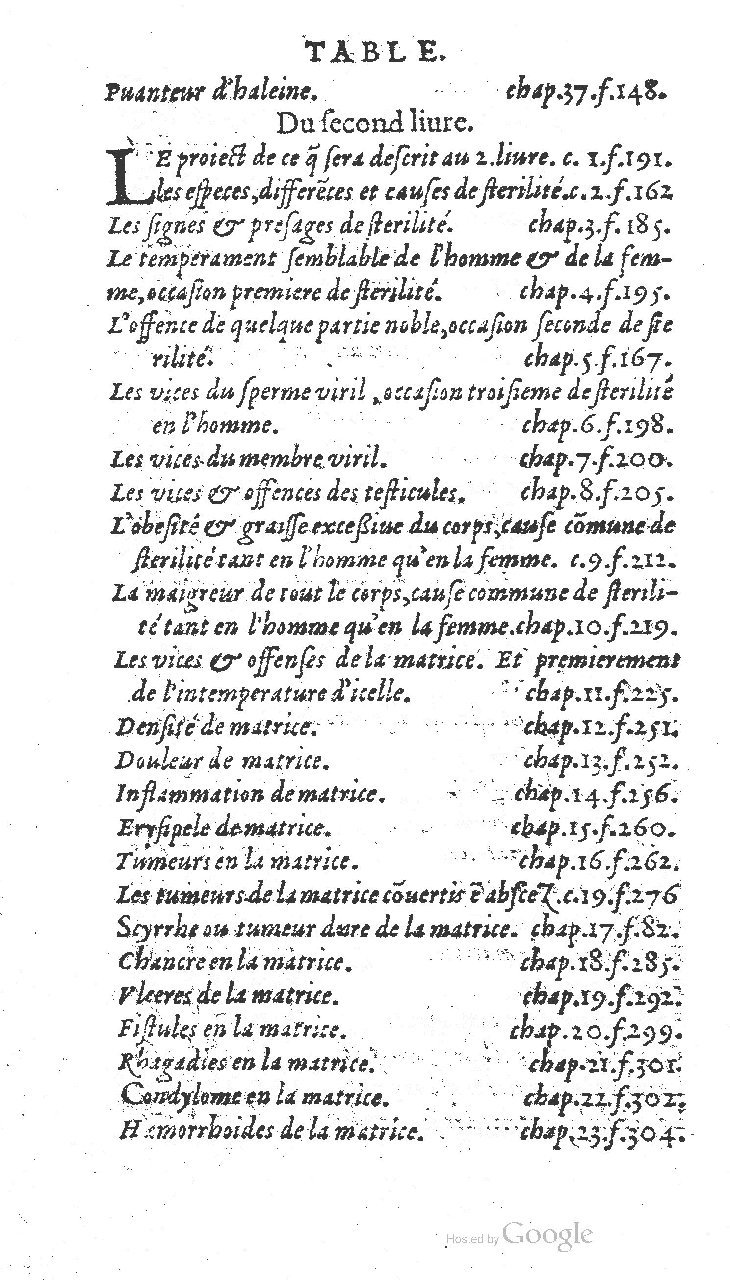 TABLE.
Puanteur d'haleine. chap.37.f.148.
Du ſecond liure.
LE proiect de ce q̃ ſera deſcrit au 2.liure. c. 1.f.191.
Les eſpeces,differẽces et cauſes de ſterilité.c.2.f.162
Les ſignes & preſages de ſterilité. chap.3.f.185.
Le temperament ſemblable de l'homme & de la fem-
me,occaſion premiere de ſterilité. chap.4.f.195.
L'offence de quelque partie noble,occaſion ſeconde de ſte
rilité. chap.5.f.167.
Les vices du ſperme viril ,occaſion troiſieme de ſterilité
en l'homme. chap.6.f.198.
Les vices du membre viril. chap.7.f.200.
Les vices & offences des teſticules. chap.8.f.205.
L'obeſité & graiſſe exceßiue du corps,cauſe cõmune de
ſterilité tant en l'homme qu'en la femme. c.9.f.212.
La maigreur de tout le corps,cauſe commune de ſterili-
té tant en l'homme qu'en la femme.chap.10.f.219.
Les vices & offenſes de la matrice. Et premierement
de l'intemperature d'icelle. chap.11.f.225.
Denſité de matrice. chap.12.f.251.
Douleur de matrice. chap.13.f.252.
Inflammation de matrice. chap.14.f.256.
Eryſipele de matrice. chap.15.f.260.
Tumeurs en la matrice. chap.16.f.262.
Les tumeurs de la matrice cõuertis ẽ abſcez.c.19.f.276
Scyrrhe ou tumeur dure de la matrice. chap.17.f.82.
Chancre en la matrice. chap.18.f.285.
Vlceres de la matrice. chap.19.f.292.
Fiſtules en la matrice. chap.20.f.299.
Rhagadies en la matrice. chap.21.f.301.
Condylome en la matrice. chap.22.f.302.
Hæmorrhoides de la matrice. chap.23.f.304.
Hosted by Google